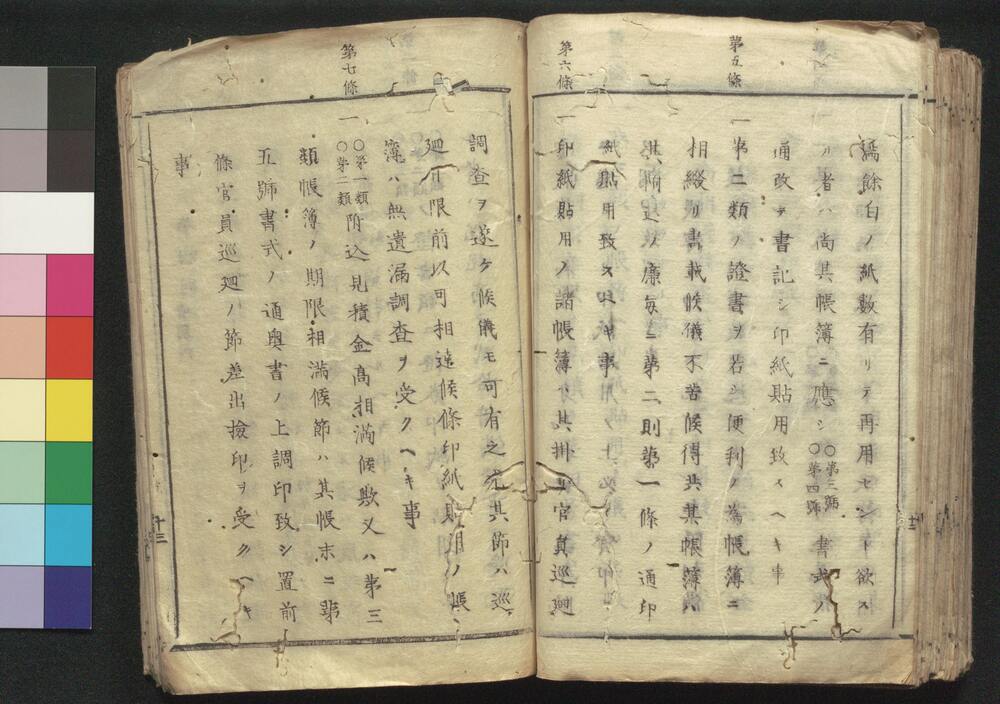 爲餘白ノ紙數有リテ再用セント欲ス
ル者ハ尚其帳簿ニ應シ○第三號○第四號書式ノ
通改テ書記シ印紙貼用致スヘキ事
第五條
一第二類ノ證書ヲ若シ便利ノ為帳簿ニ
相綴リ書載候儀不苦候得共其帳簿ハ
其附込ノ廉毎ニ第二則第一條ノ通印
紙貼用致スヘキ事
第六條
一印紙貼用ノ諸帳簿ハ其掛リ官員巡廻
調査ヲ遂ケ候儀モ可有之尤其節ハ巡
廻日限前以可相達候條印紙貼用ノ帳
簿ハ無遺漏調査ヲ受クヘキ事
第七條
一○第一類○第二類附込見積金高相滿候歟又ハ第三
類帳簿ノ期限相滿候節ハ其帳末ニ第
五號書式ノ通奥書ノ上調印致シ置前
條官員巡廻ノ節差出撿印ヲ受クヘキ
事
十三